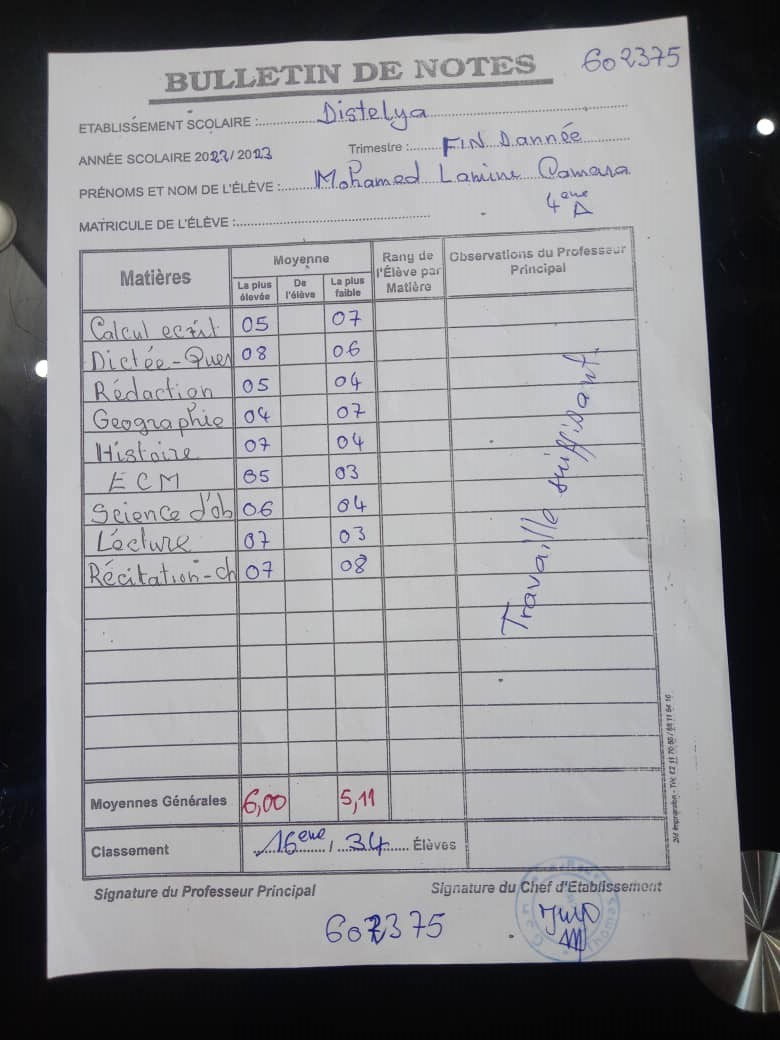 602375
BULLETIN DE NOTES
ETABLISSEMENT SCOLAIRE : Distelya
ANNÉE SCOLAIRE 2022/2023 Trimestre : FIN D'année
PRÉNOMS ET NOM DE L'ÉLÈVE : Mohamed Lamine Camara
4eme A
MATRICULE DE L'ÉLÈVE :
Matières Moyenne Rang de l'Élève par Matière Observations du Professeur Principal
La plus élevée De l'élève La plus faible
Calcul ecrit 05 07
Dictée-Ques 08 06
Rédaction 05 04
Geographie 04 07
Histoire 07 04
ECM 05 03
Science d'ob 06 04
Lecture 07 03
Récitation-ch 07 08
Travaille suffisant.
Moyennes Générales 6,00 5,11
Classement 16eme / 34 Élèves
Signature du Professeur Principal Signature du Chef d'Etablissement
602375